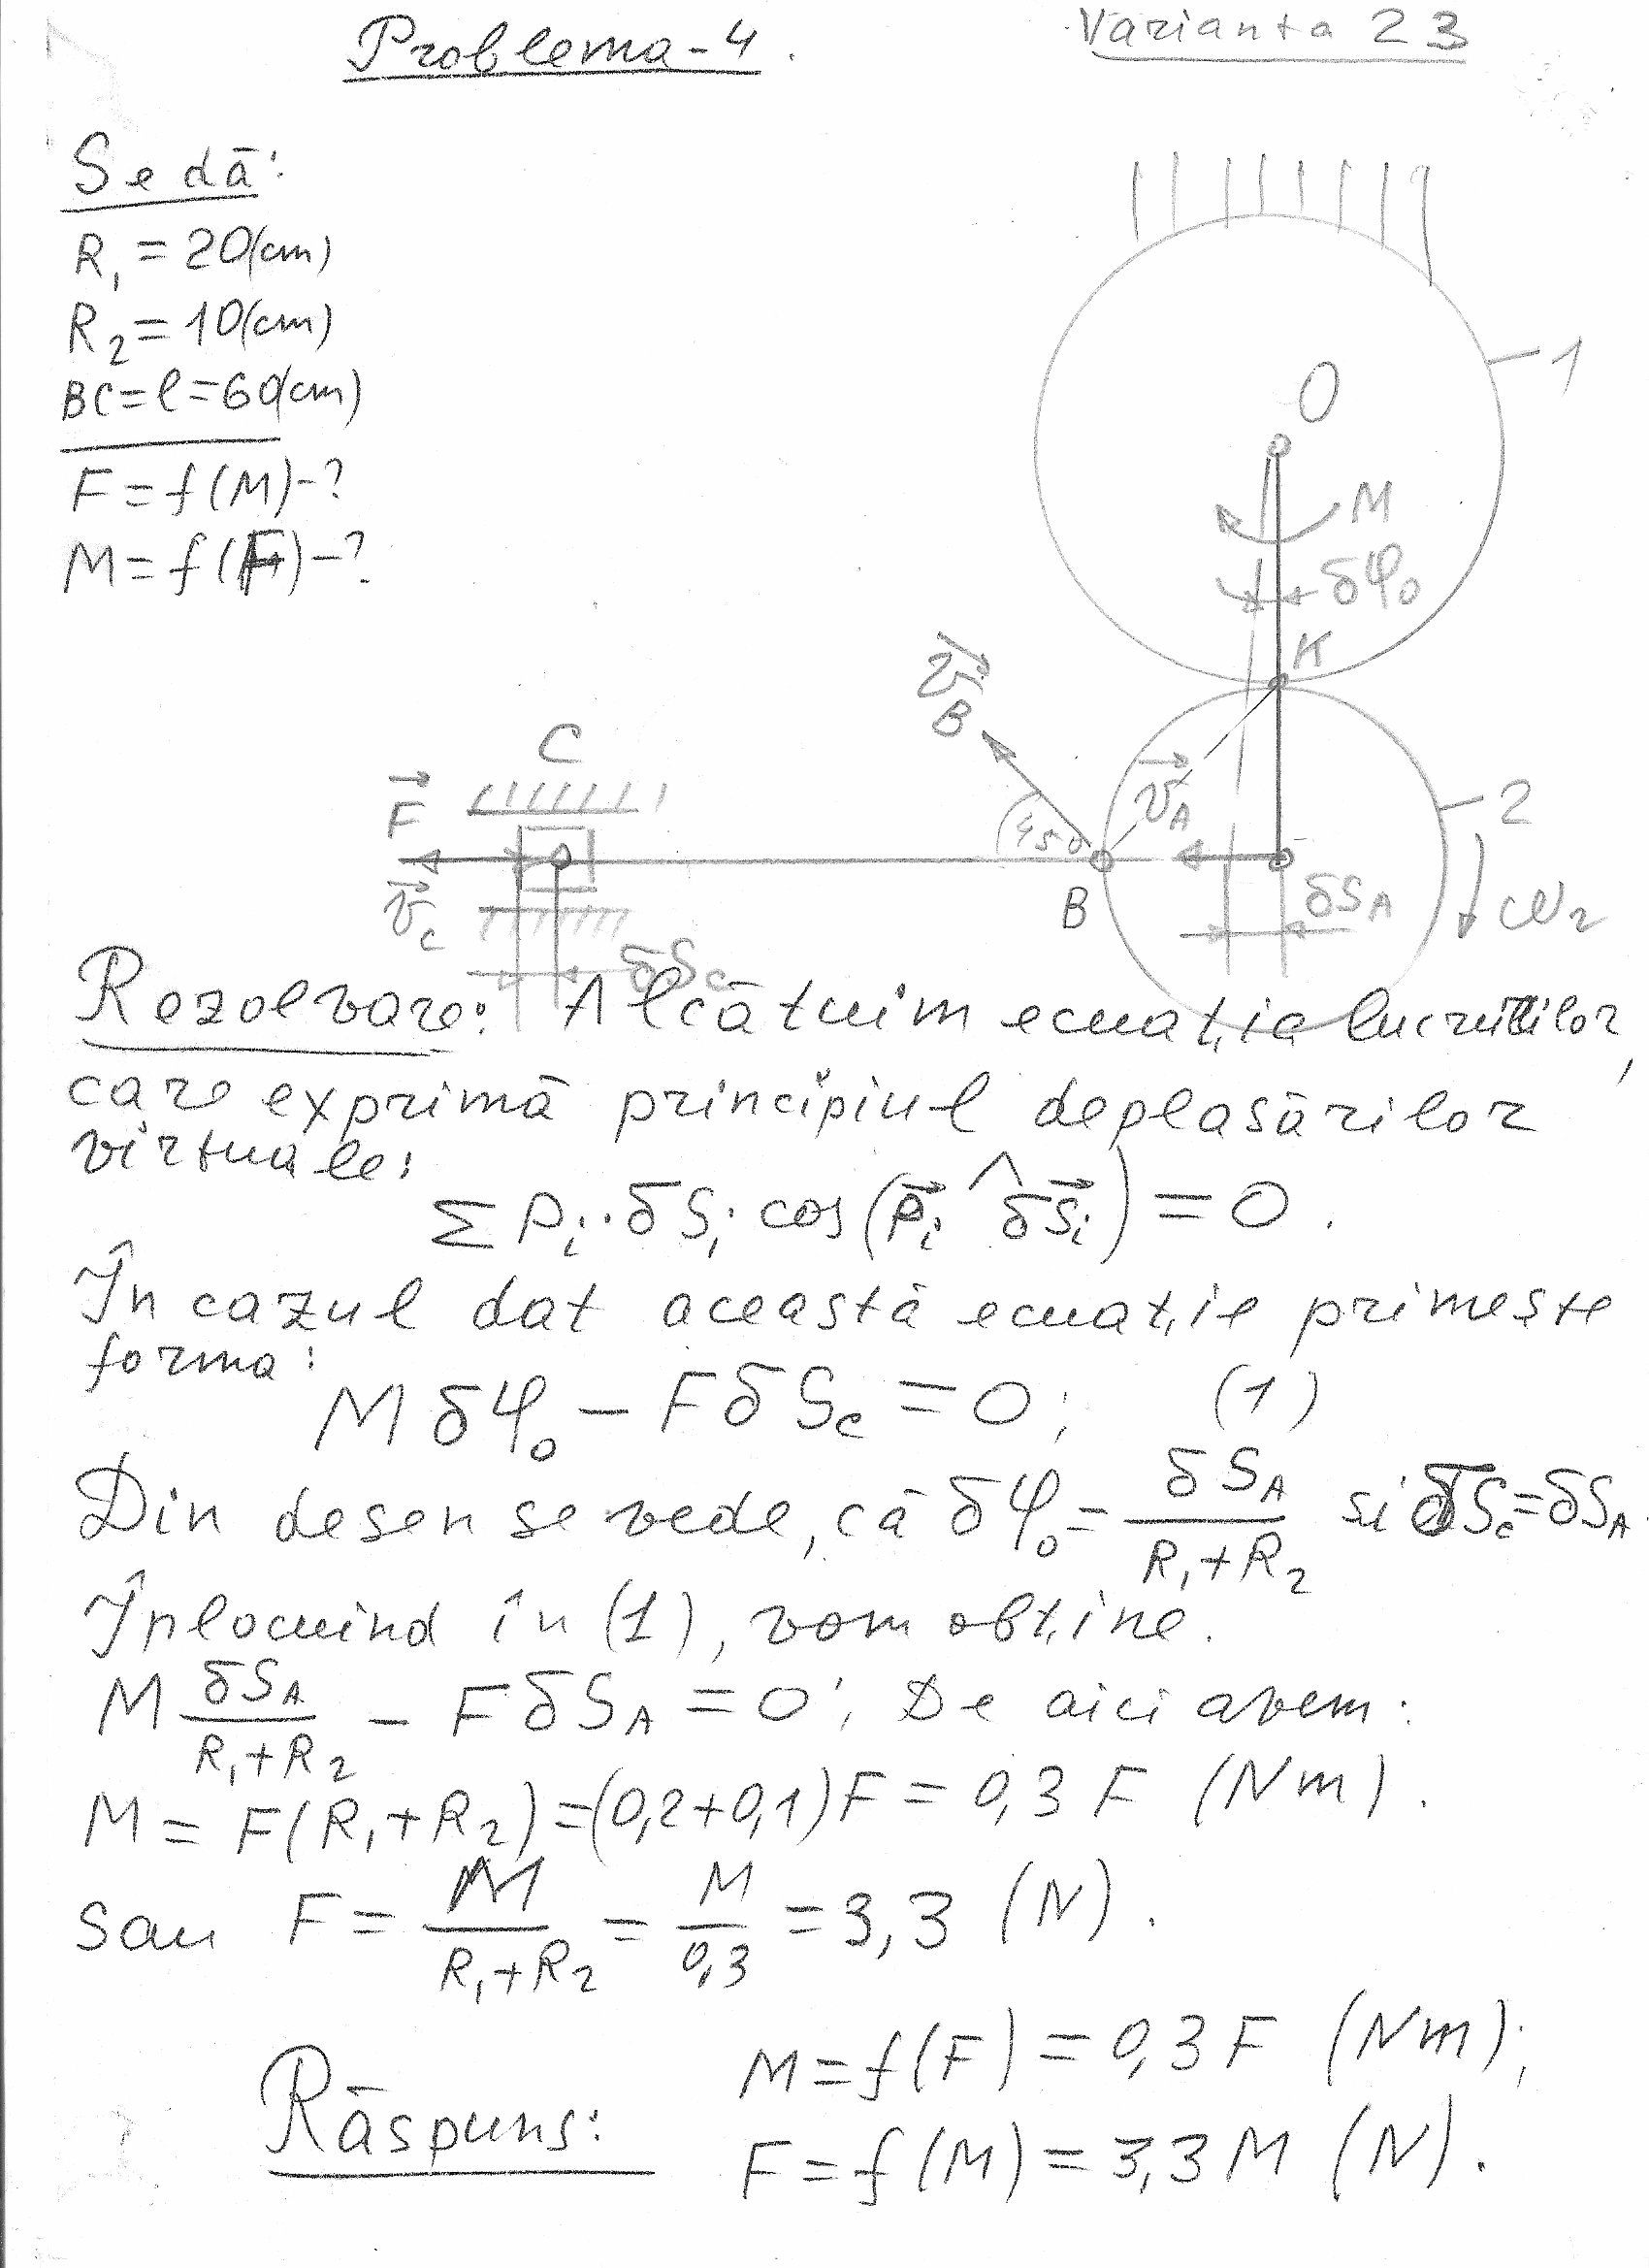 Problema-4.
Varianta 23
Se dă:
R₁ = 20(cm)
R₂ = 10(cm)
BC = l = 60(cm)
F = f(M) - ?
M = f(F) - ?
1
O
M
δφ₀
K
v⃗_B
C
F⃗
v⃗_A
45°
2
B
δS_A
ω₂
v⃗_c
δS_c
Rezolvare: Alcătuim ecuația lucrurilor,
care exprimă principiul deplasărilor
virtuale:
Σ Pᵢ · δSᵢ cos(P⃗ᵢ ^ δS⃗ᵢ) = 0.
În cazul dat această ecuație primește
forma:
M δφ₀ - F δS_c = 0; (1)
Din desen se vede, că δφ₀ = δS_A / (R₁+R₂) si δS_c = δS_A.
Înlocuind în (1), vom obține.
M δS_A / (R₁+R₂) - F δS_A = 0; De aici avem:
M = F(R₁+R₂) = (0,2+0,1)F = 0,3 F (Nm).
sau F = M / (R₁+R₂) = M / 0,3 = 3,3 (N).
M = f(F) = 0,3 F (Nm);
Răspuns:
F = f(M) = 3,3 M (N).